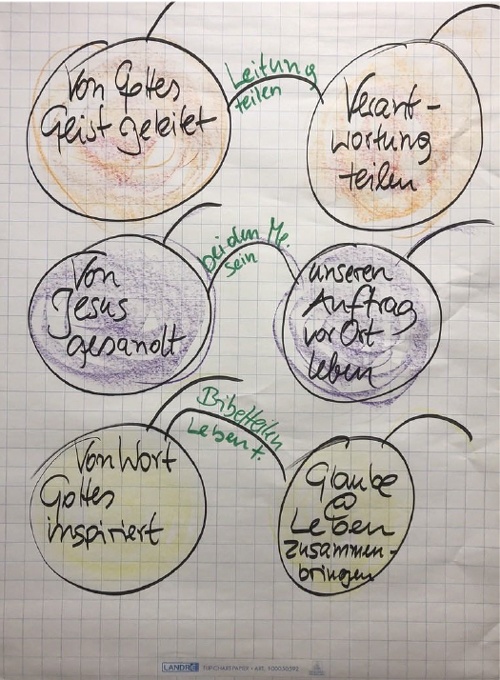 Von Gottes
Geist geleitet
Leitung
teilen
Verant-
wortung
teilen
Von
Jesus
gesandt
bei den Me.
sein
unseren
Auftrag
vor Ort
leben
Von Wort
Gottes
inspiriert
Bibelteilen
Leben t.
Glaube
@
Leben
zusammen-
bringen
LANDRÉ FLIPCHARTPAPIER • ART. 100050592